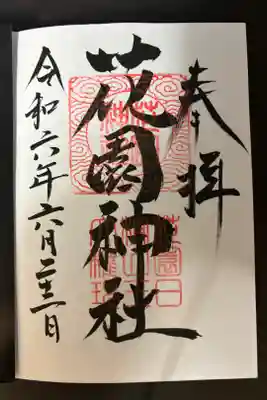 奉拝
花園神社
令和六年六月二十三日